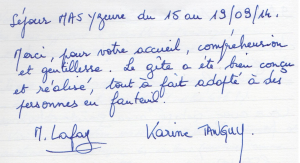 Séjour MAS Yzeure du 15 au 19/09/14.
Merci, pour votre accueil, compréhension
et gentillesse. Le gîte a été bien conçu
et réalisé, tout à fait adapté à des
personnes en fauteuil.
M. Lafay Karine TANGUY.